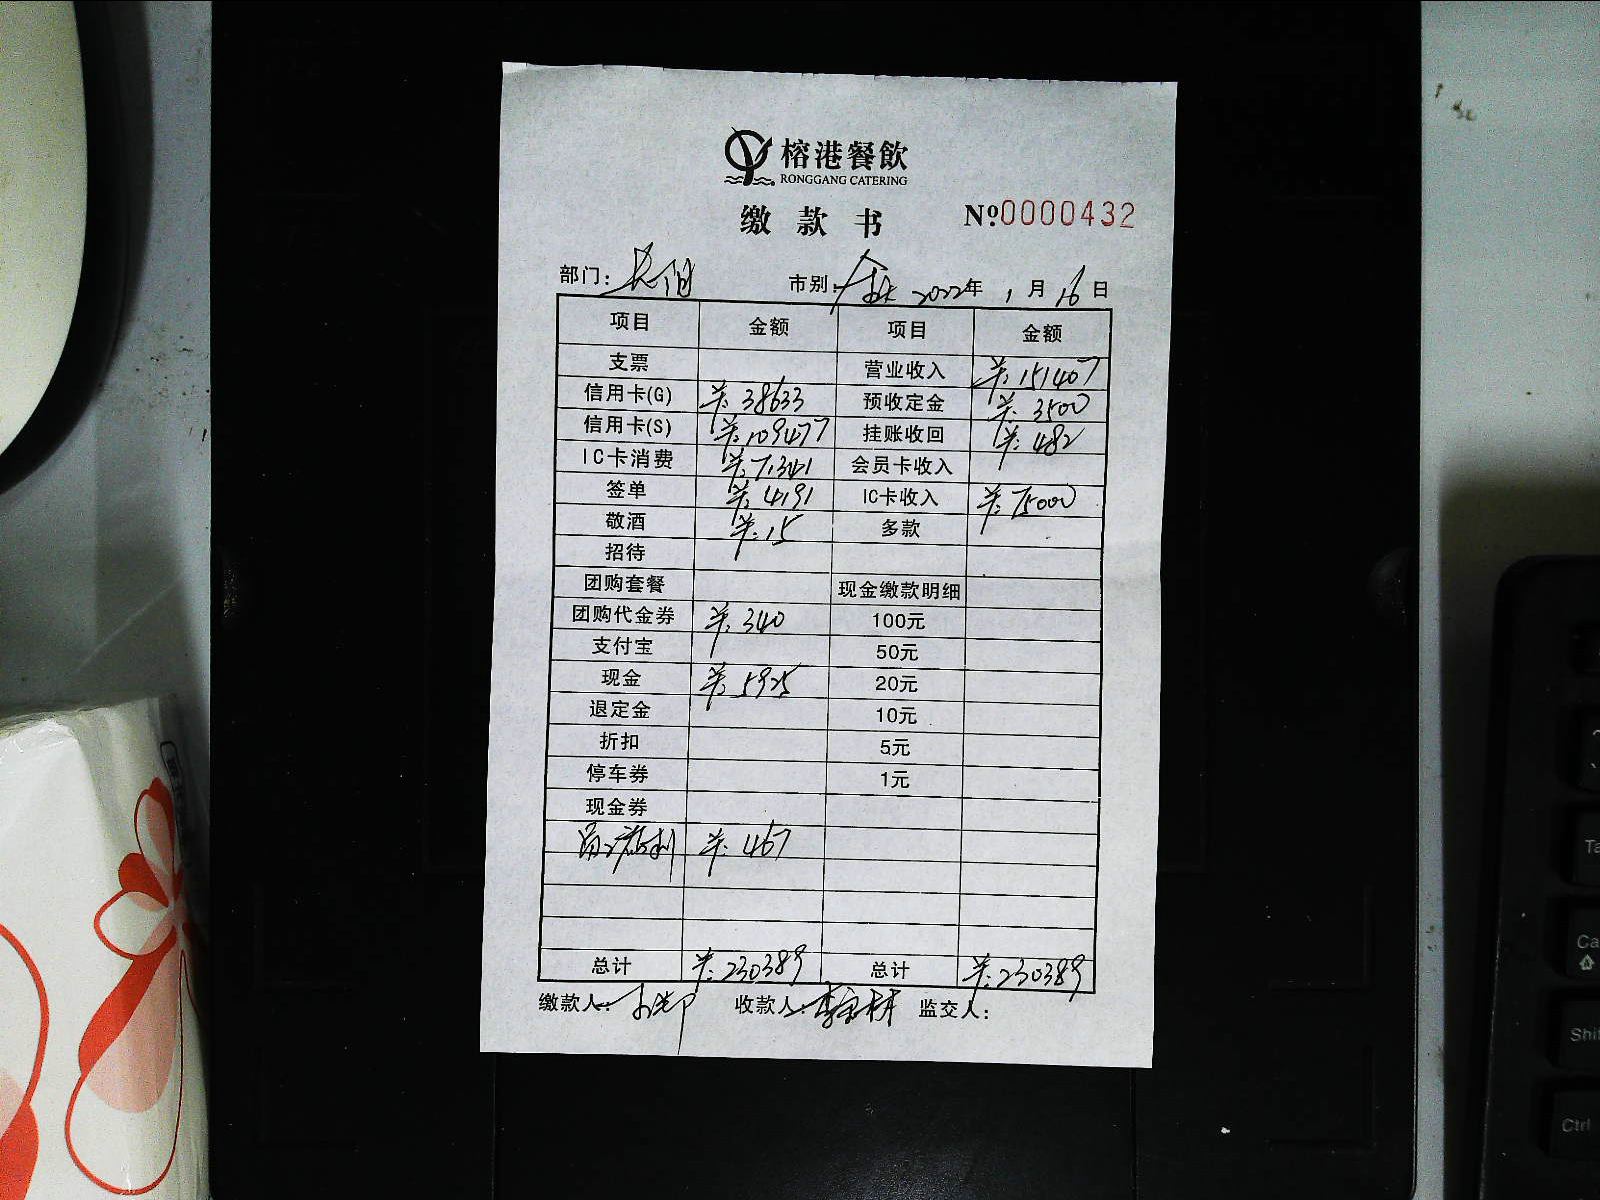 榕港餐飲
RONGGANG CATERING
缴款书 №0000432
部门: 市别: 2022年 1月 16日
项目 金额 项目 金额
支票 营业收入 ¥:151407
信用卡(G) ¥:38633 预收定金 ¥:3500
信用卡(S) ¥:109477 挂账收回 ¥:482
IC卡消费 ¥:71341 会员卡收入
签单 ¥:4191 IC卡收入 ¥:75000
敬酒 ¥:15 多款
招待
团购套餐 现金缴款明细
团购代金券 ¥:340 100元
支付宝 50元
现金 ¥:5925 20元
退定金 10元
折扣 5元
停车券 1元
现金券
员工福利 ¥:467
总计 ¥:230389 总计 ¥:230389
缴款人: 收款人: 监交人:
Ctrl